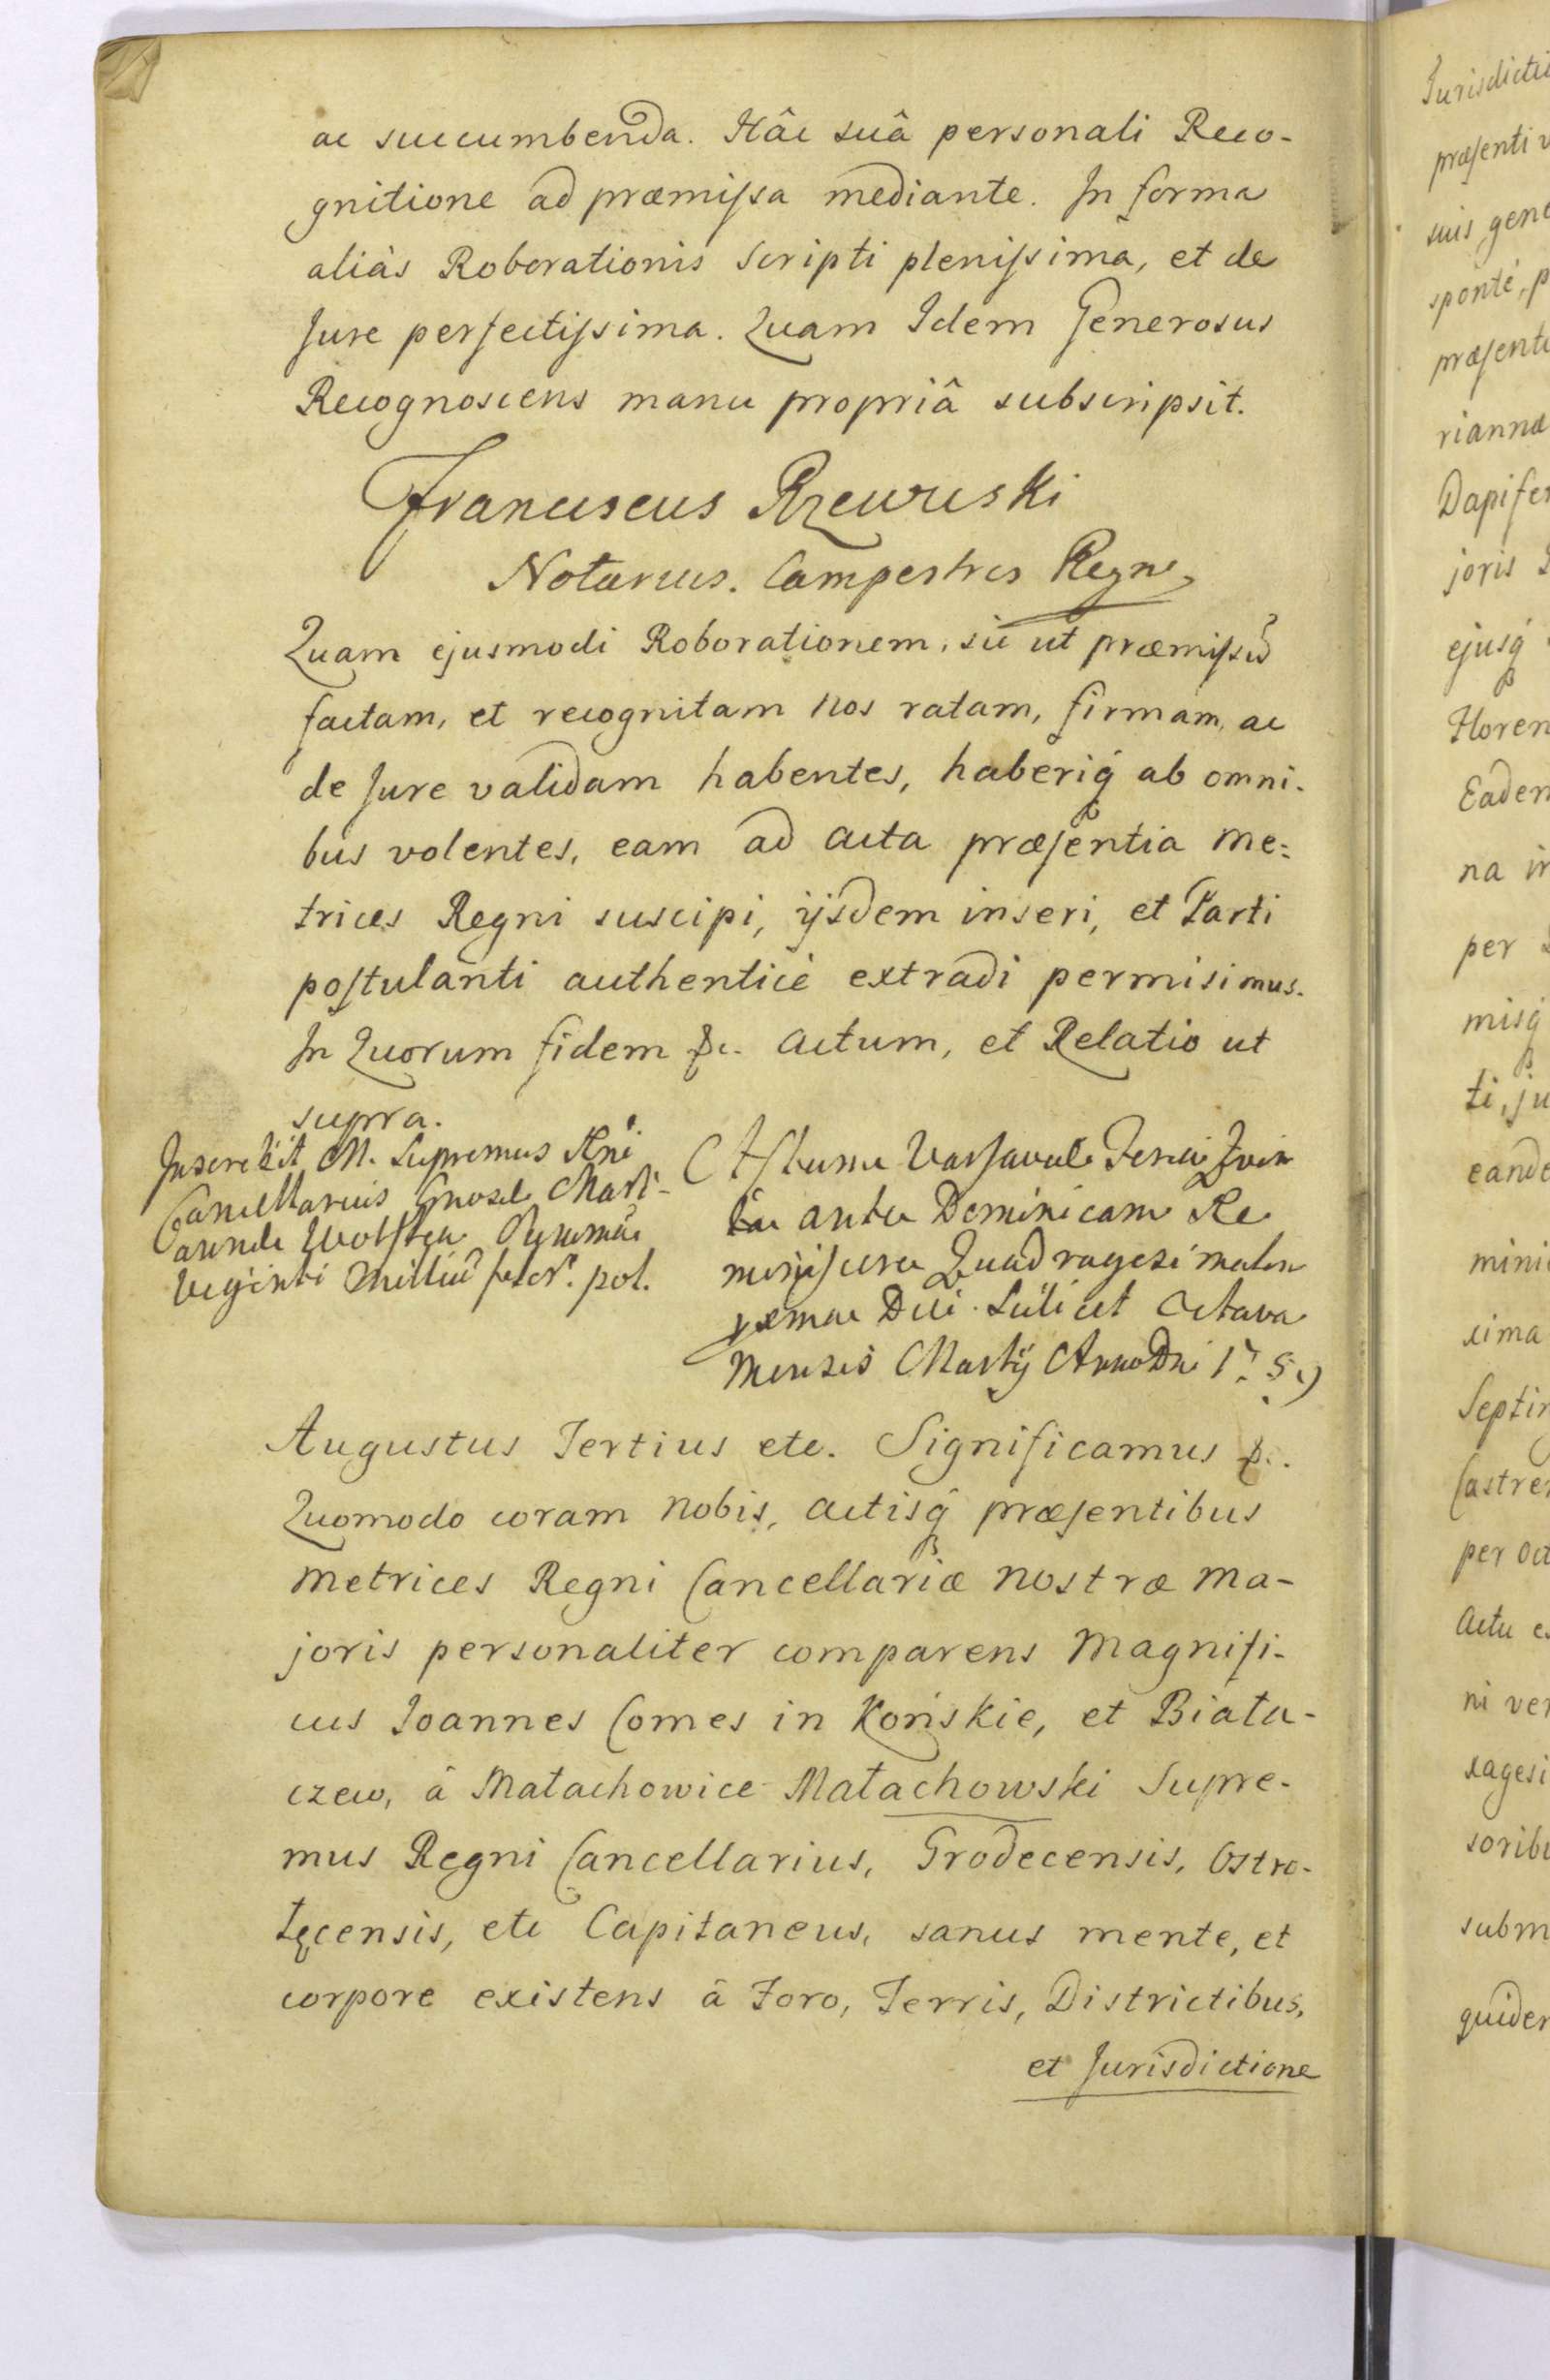 ac succumbenda. Hâc suâ personali Reco-
gnitione ad præmissa mediante. In forma
aliàs Roborationis Scripti plenissima, et de
Jure perfectissima. Quam Idem Generosus
Recognoscens manu propriâ subscripsit.
Franciscus Rzewuski
Notarius Campestris Regni
Quam ejusmodi Roborationem, sic ut præmissũ
factam, et recognitam nos ratam, firmam, ac
de Jure validam habentes, haberiq́ ab omni-
bus volentes, eam ad acta præsentia Me-
trices Regni suscipi, ijsdem inseri, et Parti
postulanti authenticè extradi permisimus.
In Quorum fidem &c. Actum, et Relatio ut
supra.
Inscribit M. Supremus Rni
Cancellarius Gnosæ Mari-
annæ Summã
Viginti Milliũ flor. pol.
Actum Varsaviæ Feria Quin
ta ante Dominicam Re
miniscere Quadragesimalem
Die Scilicet Octava
Mensis Martij Anno Dni
Augustus Tertius etc. Significamus &c.
Quomodo coram nobis, actisq́ præsentibus
Metrices Regni Cancellariæ nostræ Ma-
joris personaliter comparens Magnifi-
cus Joannes Comes in Końskie, et Biała-
czew, â Małachowice Małachowski Supre-
mus Regni Cancellarius, Grodecensis, Ostro-
łęcensis, etc Capitaneus, sanus mente, et
corpore existens â Foro, Terris, Districtibus,
et Jurisdictione
Jurisdicti
præsenti
suis gene
sponte, p
præsenti
riannæ
Dapifer
joris
ejusq́
Floren
Eadem
na in
per
misq́
ti, ju
eande
mini
xima
Septin
Castren
per
Actu
ni ver
xagesi
soribu
subm
quidem